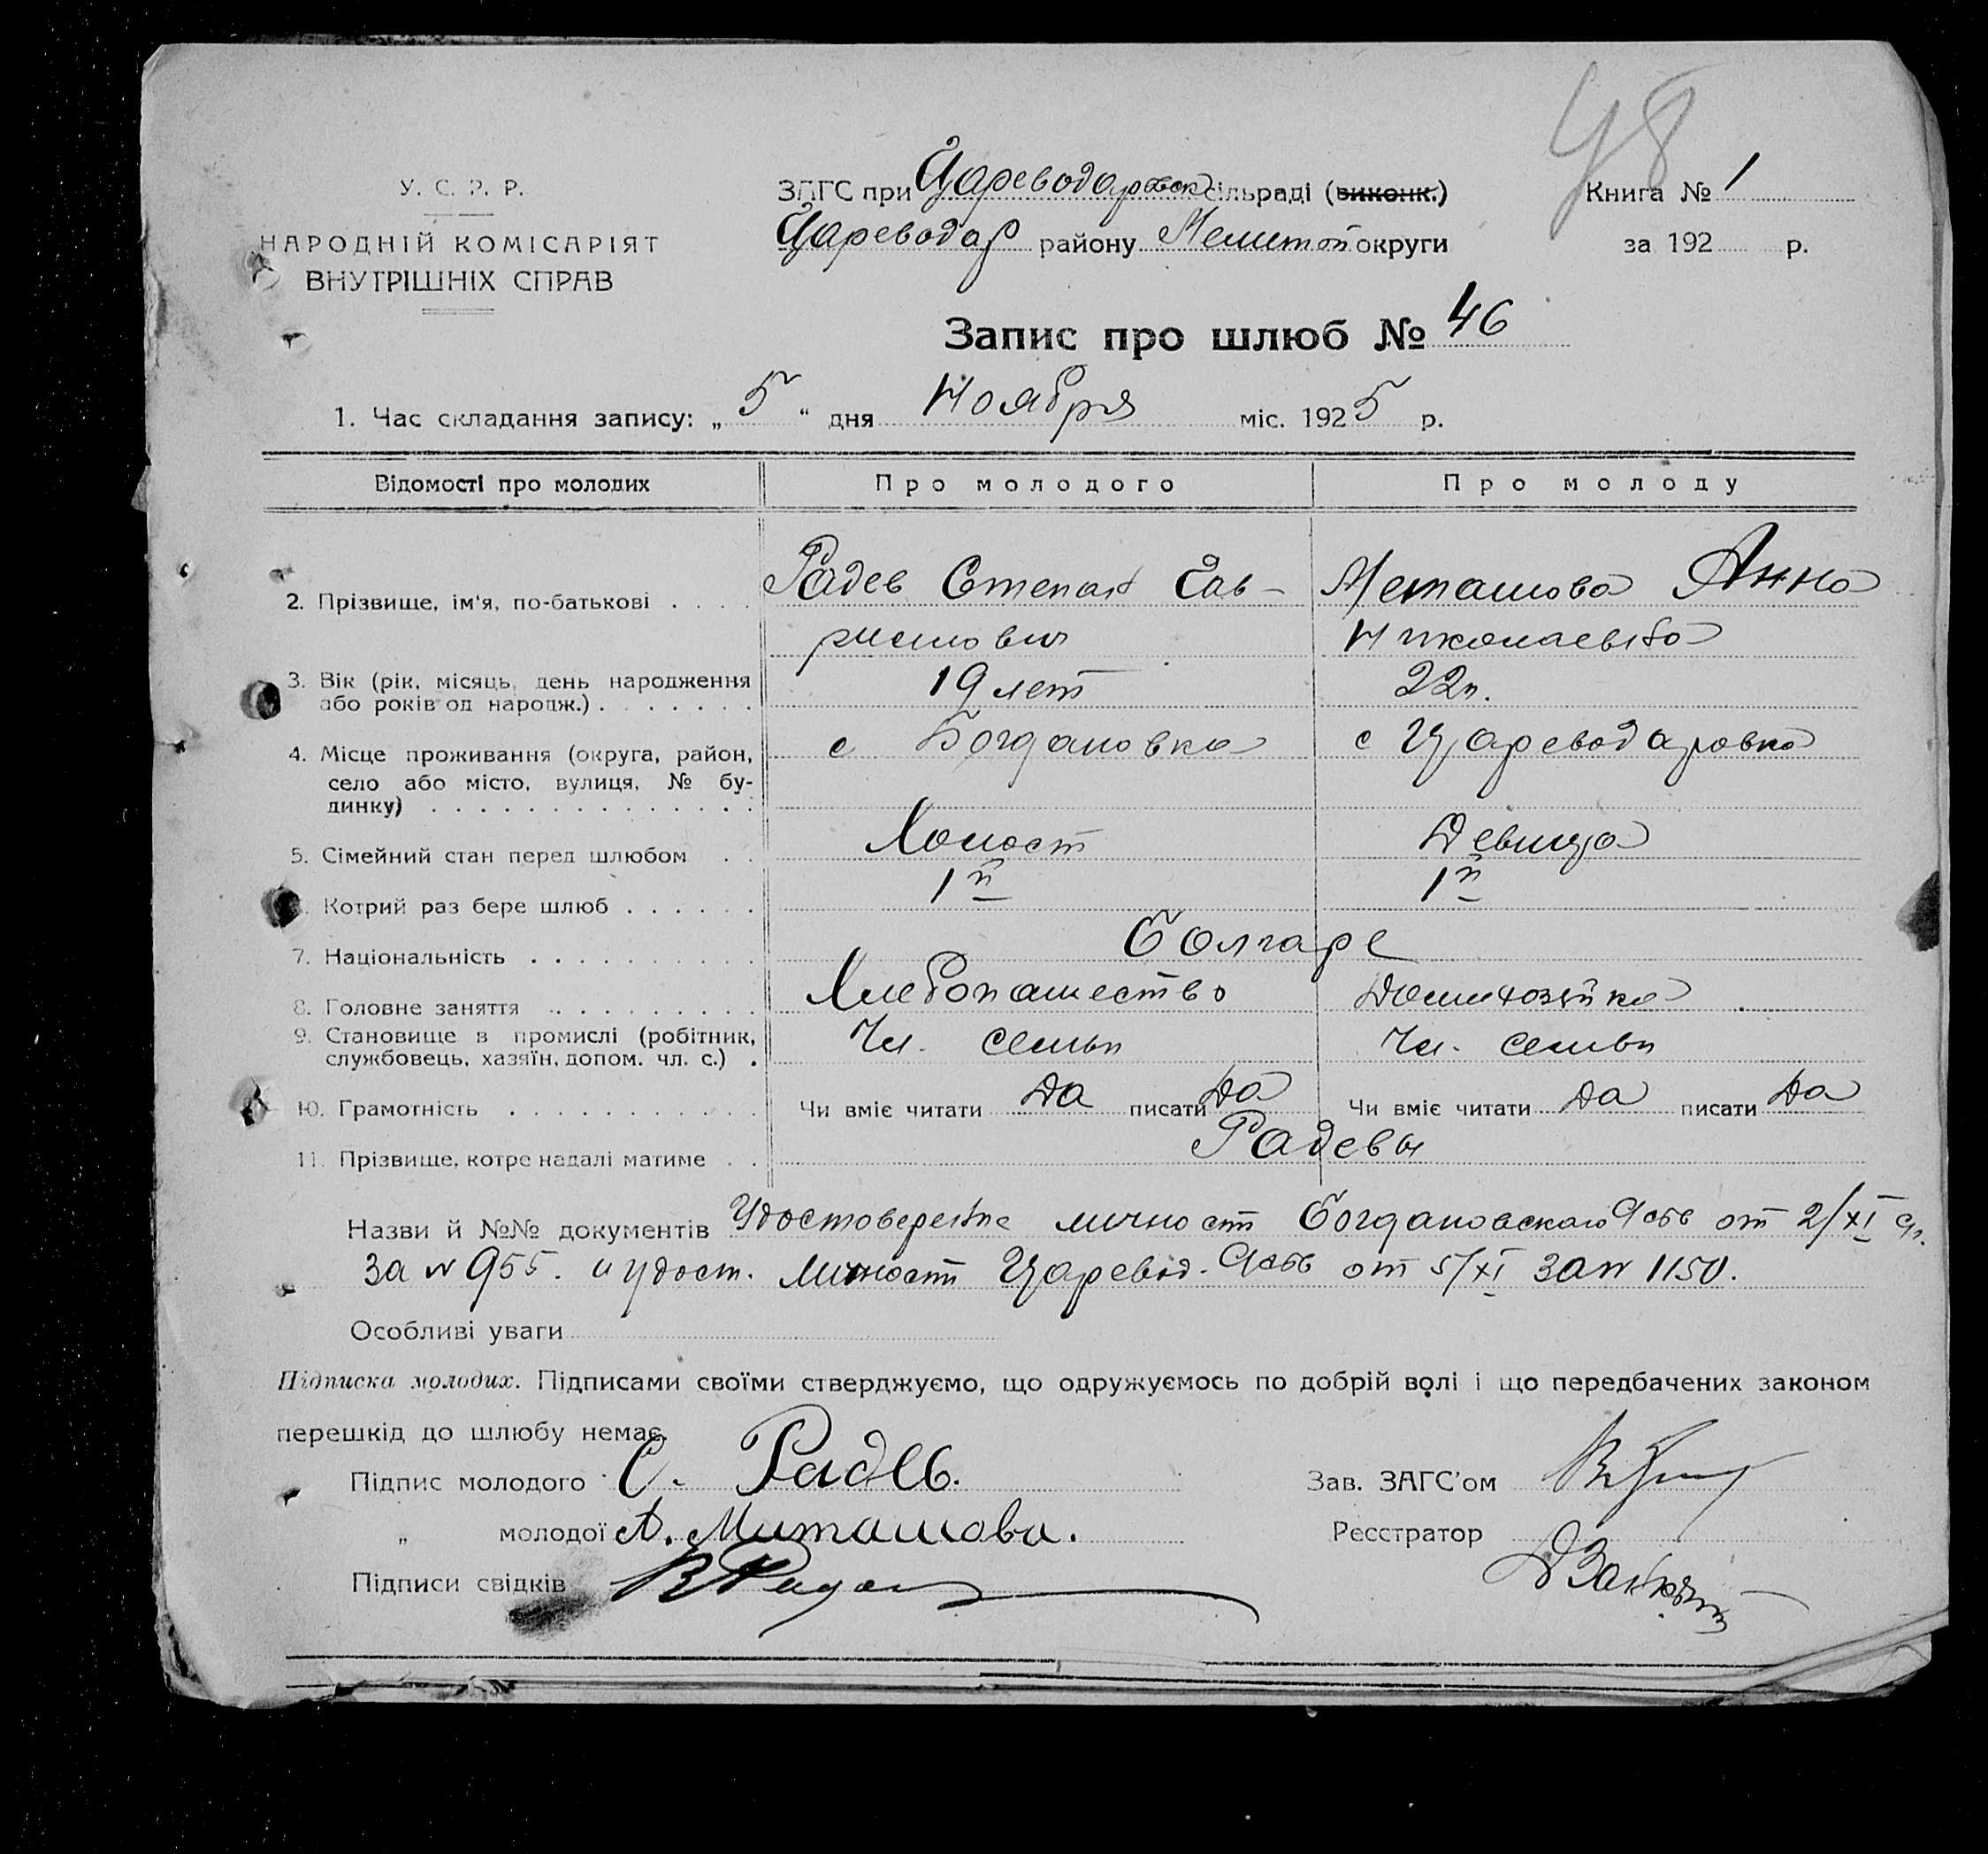 48
У. С. Р. Р.
НАРОДНІЙ КОМІСАРІЯТ
ВНУТРІШНІХ СПРАВ
ЗАГС при Цареводаровск сільраді (виконк.)
Цареводар району Мелитоп округи
Книга № 1
за 192 р.
Запис про шлюб № 46
1. Час складання запису: „ 5 “ дня Ноября міс. 1925 р.
Відомості про молодих Про молодого Про молоду
2. Прізвище, ім'я, по-батькові . . . . Радев Степан Гав- Меташова Анна
рилович Николаевна
3. Вік (рік, місяць, день народження 19 лет 22 л.
або років од народж.) . . . . . . .
4. Місце проживання (округа, район, с Богдановка с Цареводаровка
село або місто, вулиця, № бу-
динку) . . . . . . . . . . . . . .
5. Сімейний стан перед шлюбом . . Холост Девица
Котрий раз бере шлюб . . . . . . 1й 1й
7. Національність . . . . . . . . . . Болгаре
8. Головне заняття . . . . . . . . . Хлебопашество Домохозяйка
9. Становище в промислі (робітник, Чл. семьи Чл. семьи
службовець, хазяїн, допом. чл. с.) .
10. Грамотність . . . . . . . . . . . Чи вміє читати да писати да Чи вміє читати да писати да
11. Прізвище, котре надалі матиме . . Радевы
Назви й №№ документів Удостоверение личност Богдановскаго от 2/XI
за № 955. и удост. Личност Царевод. от 5/XI за № 1150.
Особливі уваги
Підписка молодих. Підписами своїми стверджуємо, що одружуємось по добрій волі і що передбачених законом
перешкід до шлюбу немає.
Підпис молодого С. Радев. Зав. ЗАГС'ом
„ молодої А. Миташова. Реєстратор
Підписи свідків